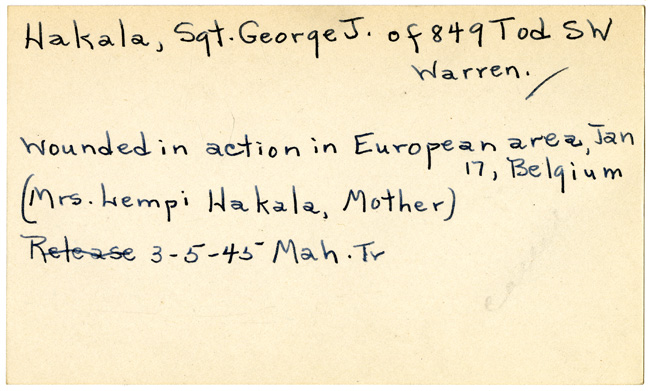 Hakala, Sgt. George J. of 849 Tod SW
Warren.
Wounded in action in European area, Jan
17, Belgium
(Mrs. Lempi Hakala, Mother)
Release 3-5-45 Mah. Tr